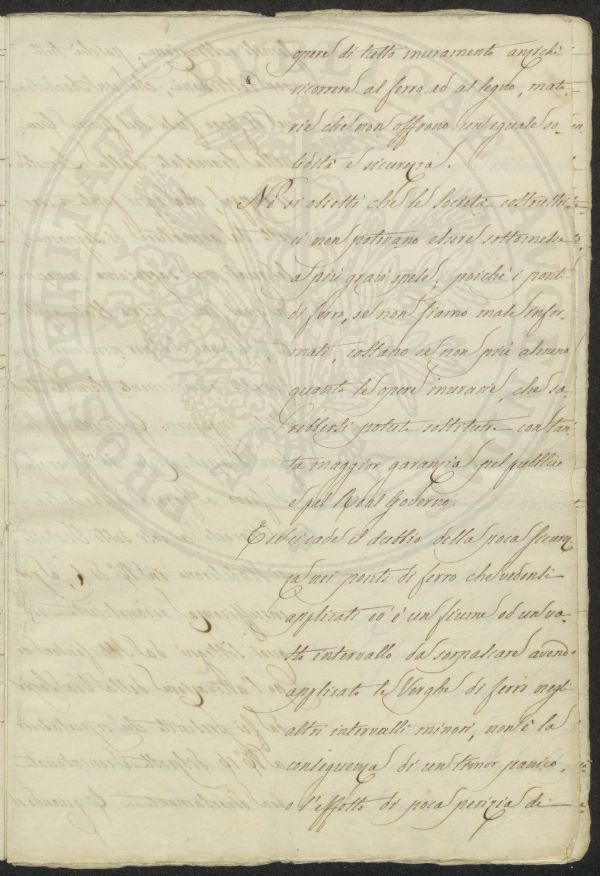 opere di tutto muramento anzichè
ricorrere al ferro, ad al legno, mate
rie che non offrono un eguale so-
lidità e sicurezza.
Nè si obietti che le Società costruttri
ci non potevano essere sottomesse
a più gravi spese, poichè i ponti
di ferro, se non siamo male infor-
mati, costano se non più almeno
quanto le opere murarie, che sa-
rebbersi potute sostituire con tan-
ta maggior garanzia pel pubblico
e pel Real Governo.
E se cade il dubbio della poca sicurez
za nei ponti di ferro che vedonsi
applicati ov'è un fiume od un va-
sto intervallo da sorpassare avendo
applicato le Verghe di ferri negli
altri intervalli minori, non è la
conseguenza di un timor panico,
o l'effetto di poca perizia di